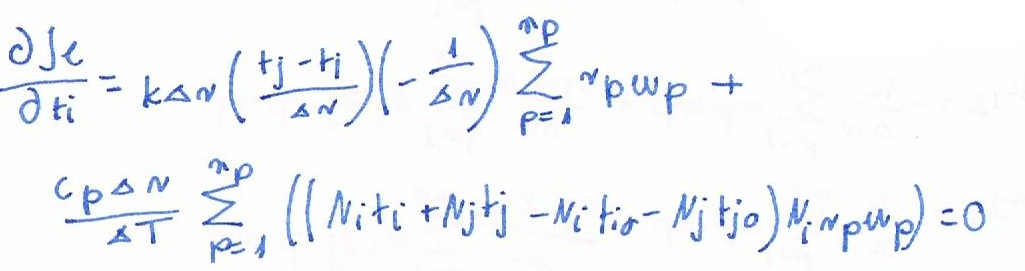 ∂Je/∂ti = kΔr((tj-ti)/Δr)(-1/Δr) Σ_{p=1}^{np} rpwp +
(cpΔr/ΔT) Σ_{p=1}^{np} ((Niti + Njtj - Nitio - Njtjo)Nirpwp) = 0